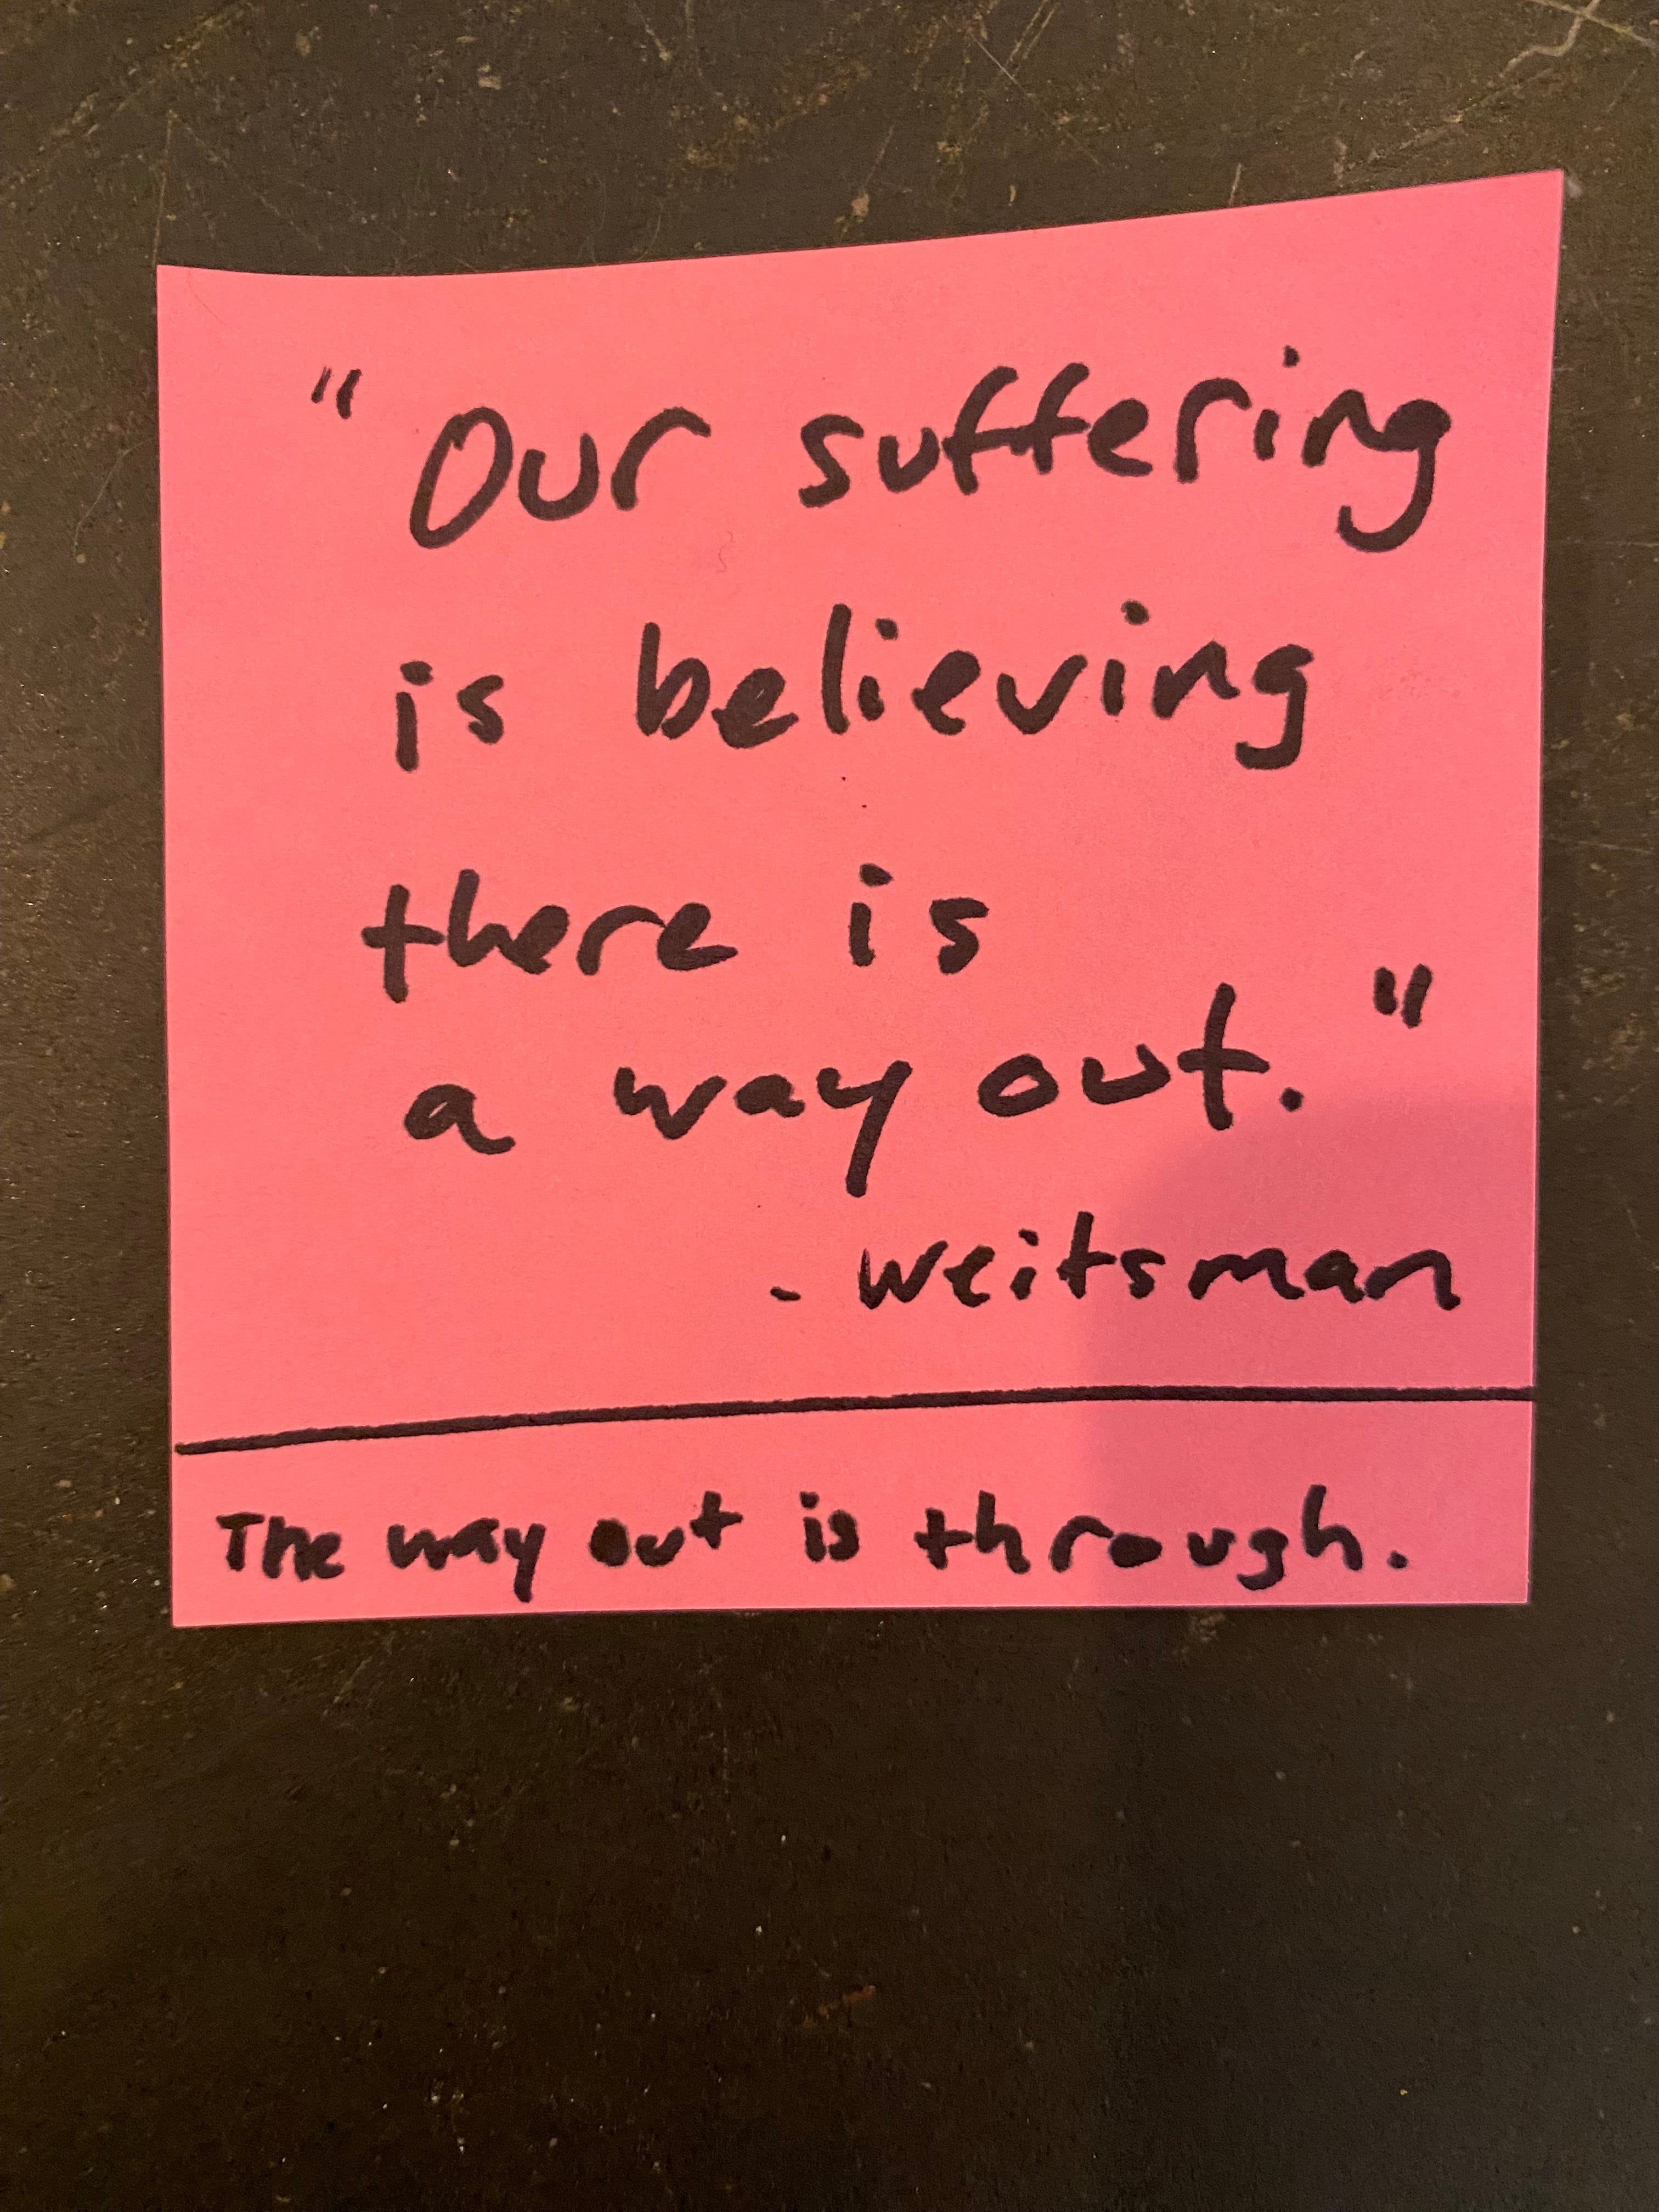 "Our suffering
is believing
there is
a way out."
- Weitsman
The way out is through.